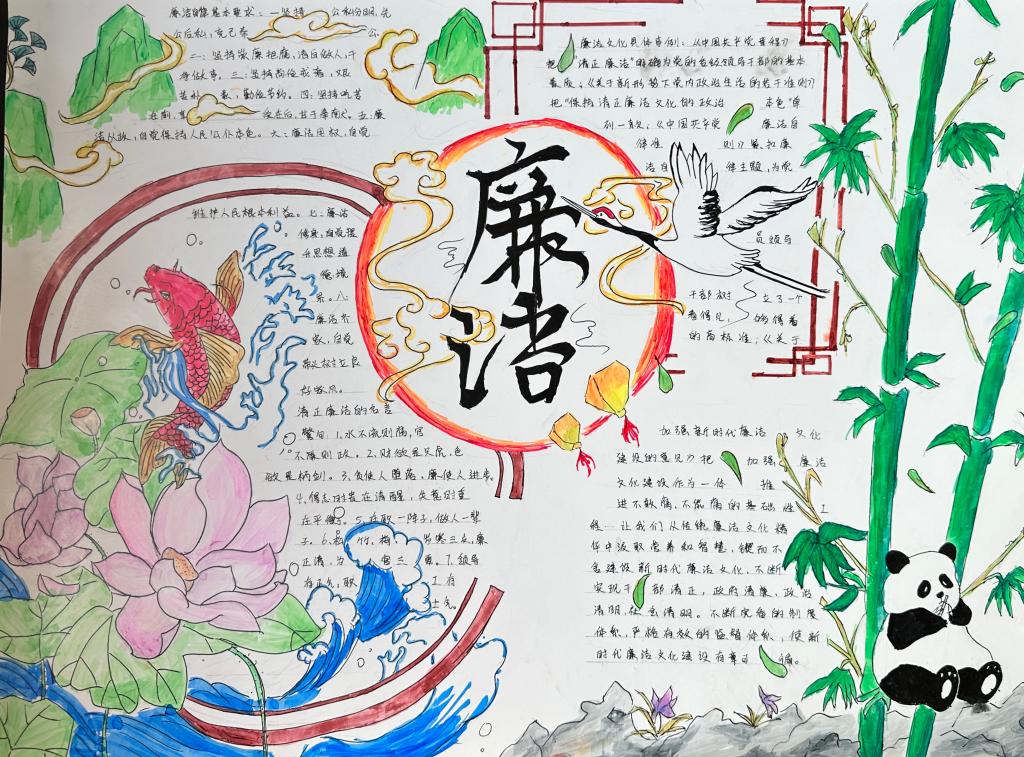 廉洁自律基本要求：一坚持 公私分明，先
公后私，克己奉 公
二：坚持崇廉拒腐，清白做人，干
净做事。三：坚持尚俭戒奢，艰
苦朴 素，勤俭节约。四：坚持吃苦
在前，享 受在后，甘于奉献。五：廉
洁从政，自觉保持人民公仆本色。六：廉洁用权，自觉
维护人民根本利益。七：廉洁
修身，自觉提
升思想道
德境
界。八：
廉洁齐
家，自觉
带头树立良
好家风。
清正廉洁的名言
警句：1、水不流则腐，官
不廉则政。2、财欲是火炭，色
欲是柄剑。3、贪使人堕落，廉使人进步。
4、得志时贵在清醒，失意时重
在平衡。5、在职一阵子，做人一辈
子。6、松 竹，梅， 岁寒三友，廉
正清，为 官三 要。7、领导
廉洁
干部树 立了一个
看得见， 够得着
的高标准；《关于
加强新时代廉洁 文化
建设的意见》把 加强 廉洁
文化建设作为一体 推
进不敢腐，不能腐的基础性 工
程 让我们从传统廉洁文化精
华中汲取营养和智慧，锲而不
舍建设新时代廉洁文化，不断
实现干 部清正，政府清廉，政治
清明，社会清明。不断完备的制度
体系，严格有效的监督体系，使新
时代廉洁文化建设有章可 循。
廉洁文化具体事例：《中国共产党章程》
把 "清正廉洁"明确为党的各级领导干部的基本
条件；《关于新形势下党内政治生活的若干准则》
把"保持清正廉洁文化的政治 本色"单
列一条；《中国共产党 廉洁自
律准 则》紧扣廉
洁自 律主题，为党
员领导